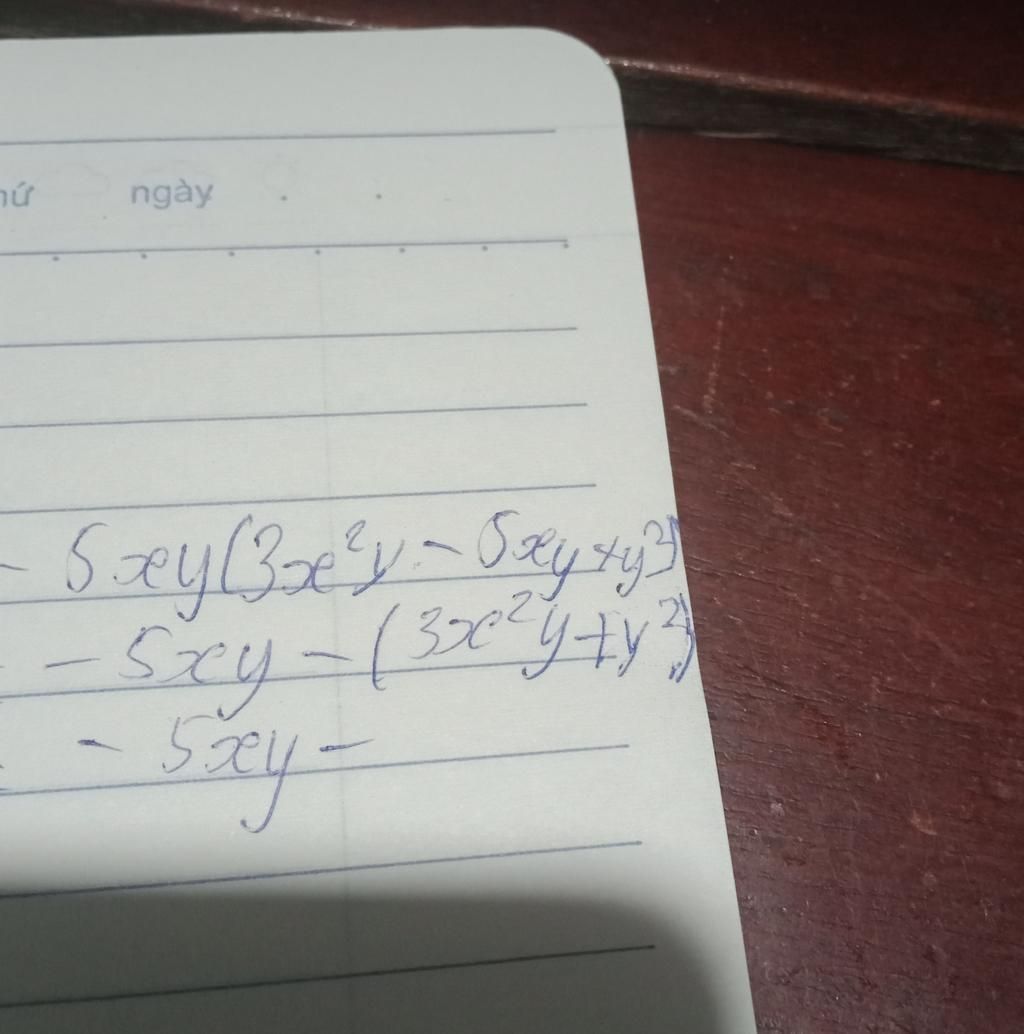 ngày . .
- 5xy(3x²y - 5xy + y²)
- 5xy - (3x²y + y²)
- 5xy -